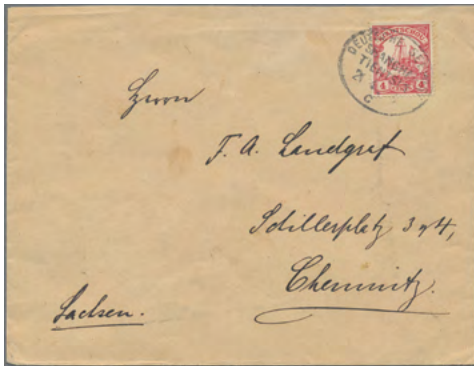 KIAUTSCHOU
4 4
Herrn
F. A. Landgraf
Schillerplatz 3 & 4,
Chemnitz.
Sachsen.